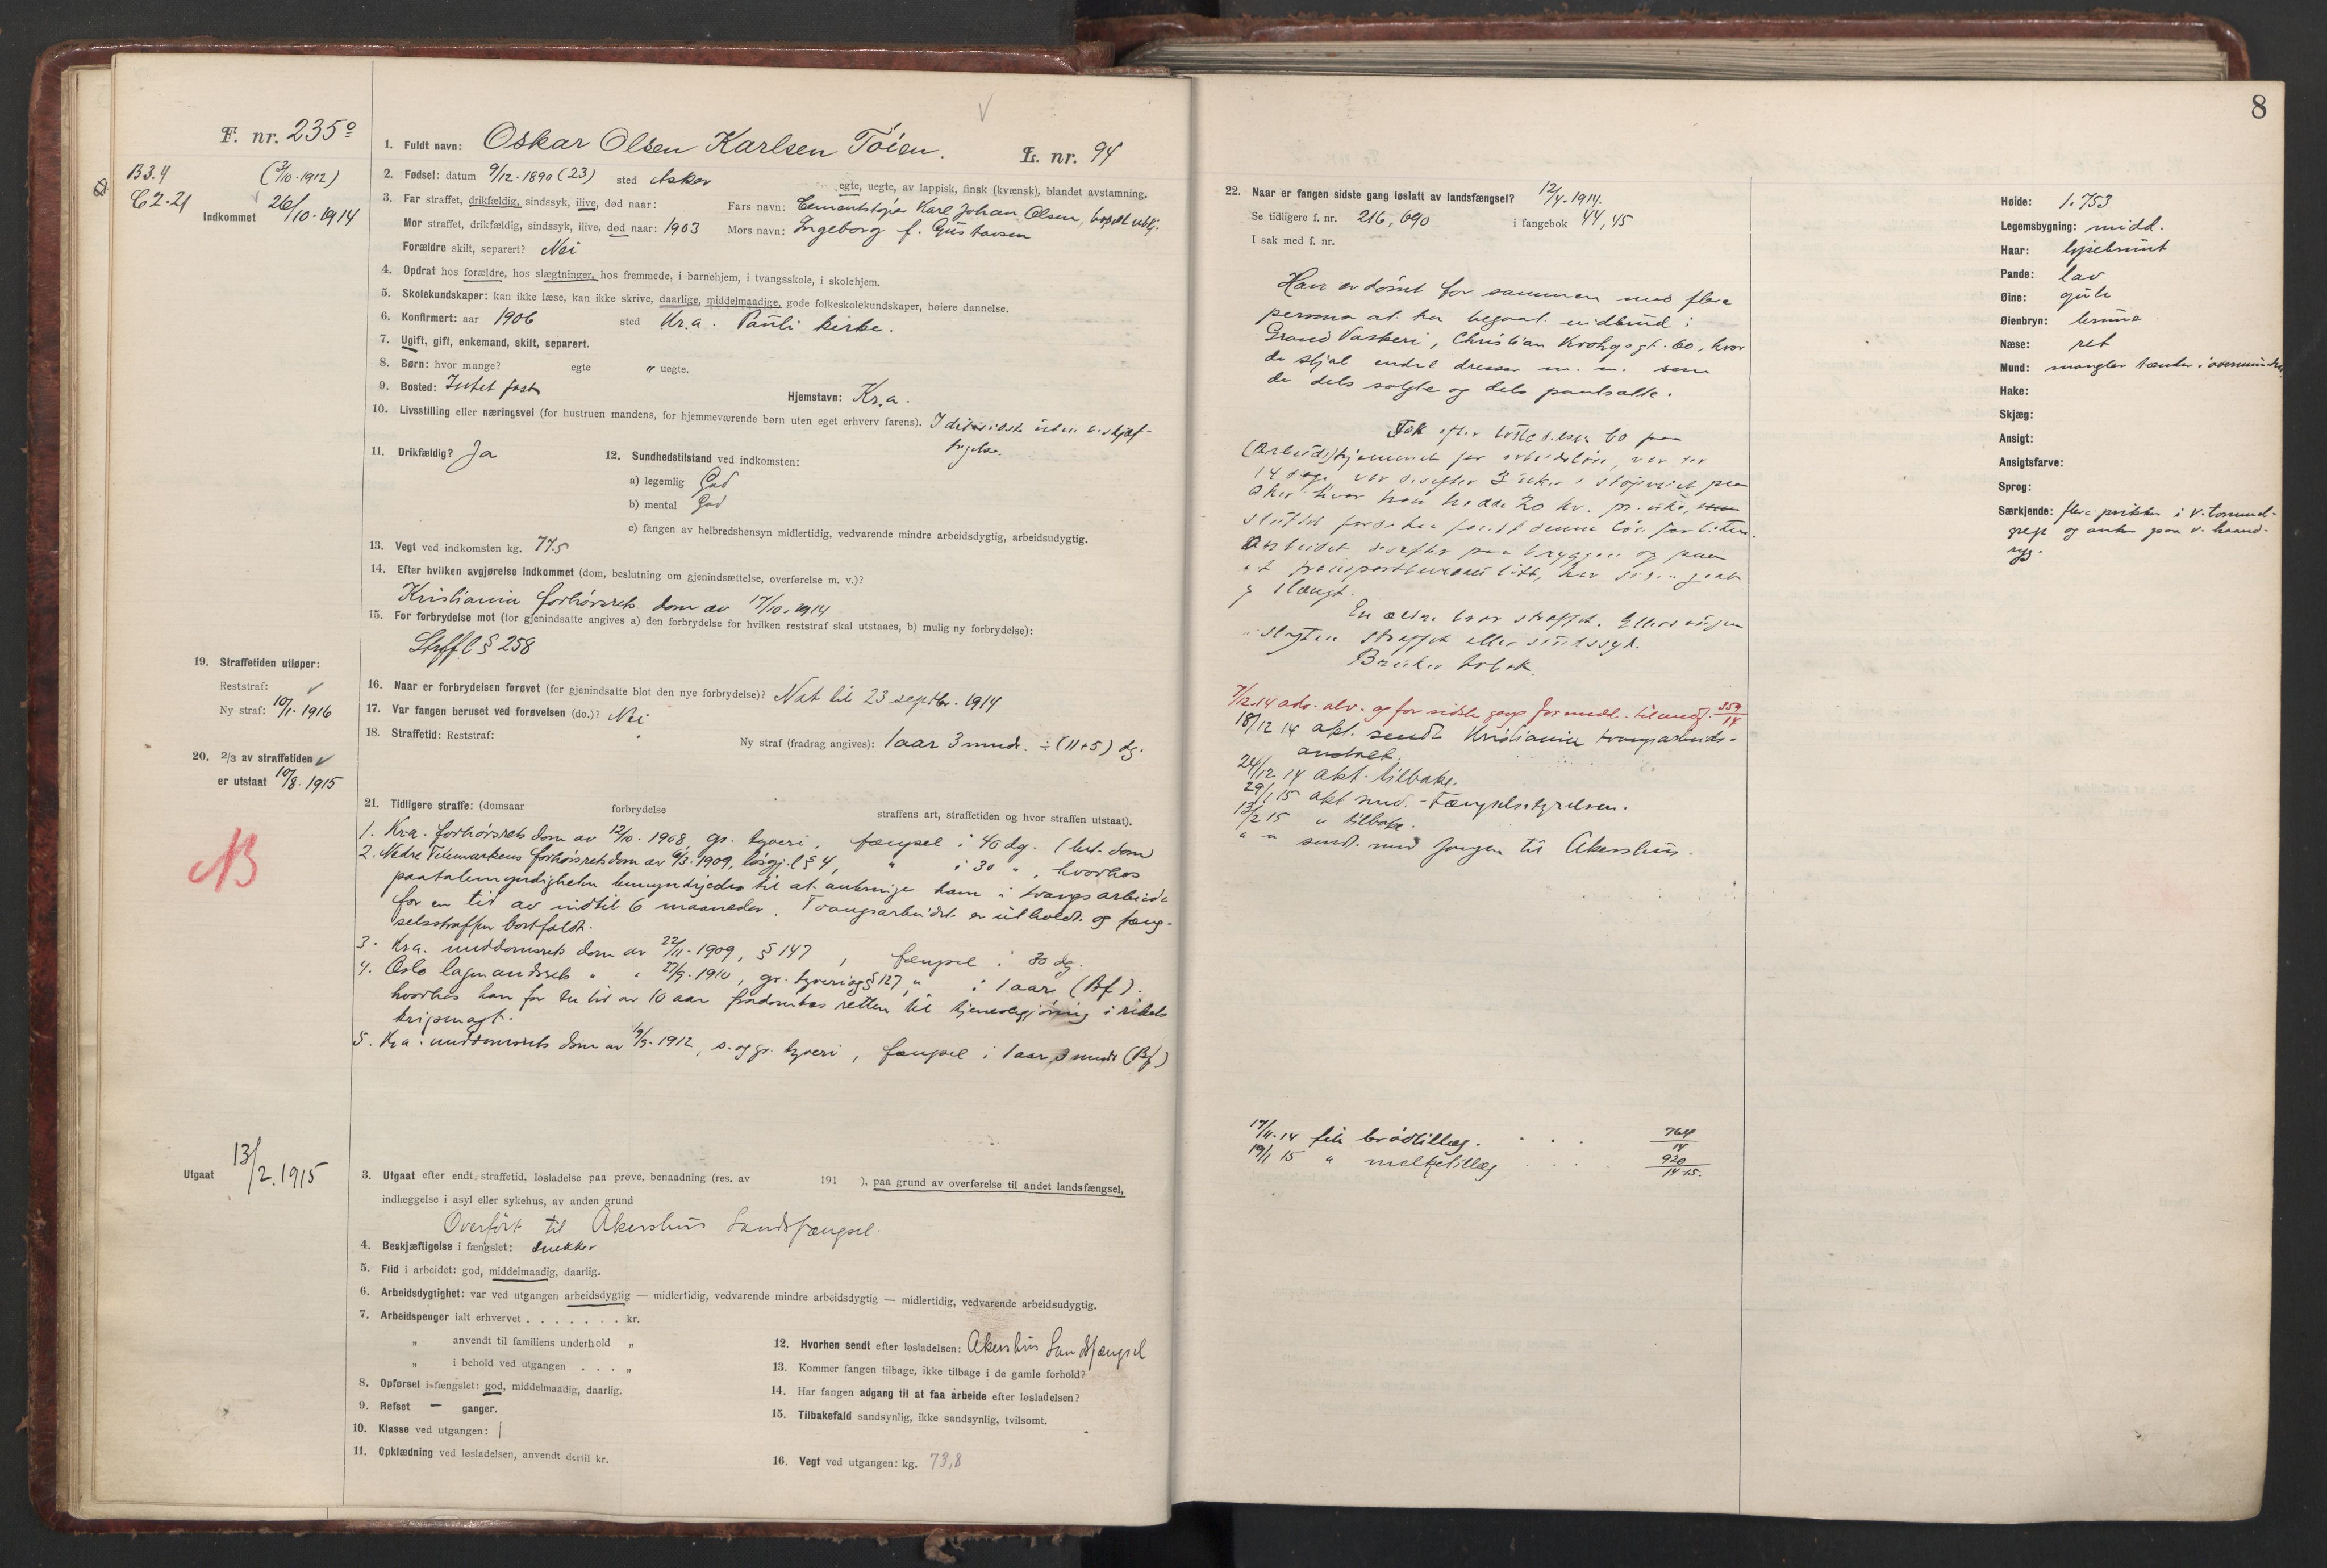 8
F. nr. 235º
B3.4 (3/10.1912)
C2.21
Indkommet 26/10.1914
1. Fuldt navn: Oskar Olsen Karlsen Töien. L. nr. 94
2. Fødsel: datum 9/12.1890 (23) sted Asker egte, uegte, av lappisk, finsk (kvænsk), blandet avstamning.
3. Far straffet, drikfældig, sindssyk, ilive, død naar: Fars navn: Cementstøper Karl Johan Olsen,
Mor straffet, drikfældig, sindssyk, ilive, død naar: 1903 Mors navn: Ingeborg f. Gustavsen
Forældre skilt, separert? Nei
4. Opdrat hos forældre, hos slægtninger, hos fremmede, i barnehjem, i tvangsskole, i skolehjem.
5. Skolekundskaper: kan ikke læse, kan ikke skrive, daarlige, middelmaadige, gode folkeskolekundskaper, høiere dannelse.
6. Konfirmert: aar 1906 sted Kr.a. Pauli kirke.
7. Ugift, gift, enkemand, skilt, separert.
8. Børn: hvor mange? egte " uegte.
9. Bosted: Intet fast Hjemstavn: Kr.a.
10. Livsstilling eller næringsvei (for hustruen mandens, for hjemmeværende børn uten eget erhverv farens). I det sidste uten beskjæf-
tigelse.
11. Drikfældig? Ja 12. Sundhedstilstand ved indkomsten:
a) legemlig God
b) mental God
c) fangen av helbredshensyn midlertidig, vedvarende mindre arbeidsdygtig, arbeidsudygtig.
13. Vegt ved indkomsten kg. 77.5
14. Efter hvilken avgjørelse indkommet (dom, beslutning om gjenindsættelse, overførelse m. v.)?
Kristiania forhörsrets dom av 17/10.1914
15. For forbrydelse mot (for gjenindsatte angives a) den forbrydelse for hvilken reststraf skal utstaaes, b) mulig ny forbrydelse):
Strffl § 258
16. Naar er forbrydelsen forøvet (for gjenindsatte blot den nye forbrydelse)? Nat til 23 septbr. 1914
17. Var fangen beruset ved forøvelsen (do.)? Nei
18. Straffetid: Reststraf: Ny straf (fradrag angives): 1 aar 3 mndr. ÷ (11+5) dg.
19. Straffetiden utløper:
Reststraf:
Ny straf: 10/1.1916
20. 2/3 av straffetiden
er utstaat 10/8.1915
21. Tidligere straffe: (domsaar forbrydelse straffens art, straffetiden og hvor straffen utstaat).
1. Kr.a. forhörsrets dom av 12/10.1908, gr. tyveri, fængsel i 40 dg. (bet. dom)
2. Nedre Telemarkens forhörsrets dom av 9/3.1909, lösgj.l § 4, " i 30 ", hvorhos
paatalemyndigheten bemyndigedes til at anbringe ham i tvangsarbeide
for en tid av indtil 6 maaneder. Tvangsarbeidet er utholdt og fæng-
selsstraffen bortfaldt.
3. Kr.a. meddomsrets dom av 22/11.1909, § 147, fængsel i 30 dg.
4. Oslo lagmandsrets " " 27/9.1910, gr. tyveri og § 127, " i 1 aar (Bf).
hvorhos han for en tid av 10 aar fradömtes retten til tjenestegjöring i rikets
krigsmagt.
5. Kr.a. meddomsrets dom av 19/3.1912, s. og gr. tyveri, fængsel i 1 aar 3 mndr (Bf)
NB
Utgaat 13/2.1915
3. Utgaat efter endt straffetid, løsladelse paa prøve, benaadning (res. av 191 ), paa grund av overførelse til andet landsfængsel,
indlæggelse i asyl eller sykehus, av anden grund
Overført til Akershus Landsfængsel.
4. Beskjæftigelse i fængslet: snekker
5. Flid i arbeidet: god, middelmaadig, daarlig.
6. Arbeidsdygtighet: var ved utgangen arbeidsdygtig — midlertidig, vedvarende mindre arbeidsdygtig — midlertidig, vedvarende arbeidsudygtig.
7. Arbeidspenger ialt erhvervet . . . . . . . kr.
" anvendt til familiens underhold "
" i behold ved utgangen . . . "
8. Opførsel i fængslet: god, middelmaadig, daarlig.
9. Refset — ganger.
10. Klasse ved utgangen: 1
11. Opklædning ved løsladelsen, anvendt dertil kr.
12. Hvorhen sendt efter løsladelsen: Akershus Landsfængsel
13. Kommer fangen tilbage, ikke tilbage i de gamle forhold?
14. Har fangen adgang til at faa arbeide efter løsladelsen?
15. Tilbakefald sandsynlig, ikke sandsynlig, tvilsomt.
16. Vegt ved utgangen: kg. 73,8
22. Naar er fangen sidste gang løslatt av landsfængsel? 12/4.1914.
Se tidligere f. nr. 216, 690 i fangebok 44, 45
I sak med f. nr.
Han er dömt for sammen med flere
personer at ha begaat indbrud i
Grand Vaskeri, Christian Krohgs gt. 60, hvor
de stjal endel dresser m. m. som
de dels solgte og dels pantsatte.
efter löslatelsen bo paa
(Arbeids)hjemmet for arbeidslöse, var der
14 dage, var derefter 3 uker i støperiet paa
Aker hvor han hadde 20 kr. pr. uke,
sluttet fordi han fandt denne lön for liten.
Arbeidet derefter paa bryggen og paa
et transportbureau litt,
En ældre bror straffet. Ellers ingen
i slegten straffet eller sindssyk.
Bruker tobak.
7/12.14 adv. alv. og for sidste gang 359/14
18/12 14 akt. sendt Kristiania tvangsarbeids-
anstalt.
24/12 14 akt. tilbake.
29/1 15 akt send. Fængselsstyrelsen.
13/2 15 " tilbake.
" " send. med fangen til Akershus.
17/11.14 fik brödtillæg . . . 764/14
19/1 15 " melketillæg . . . . 920/14-15.
Høide: 1.753
Legemsbygning: midd.
Haar: lysebrunt
Pande: lav
Øine:
Øienbryn: brune
Næse: ret
Mund: mangler tænder i overmunden
Hake:
Skjæg:
Ansigt:
Ansigtsfarve:
Sprog:
Særkjende: flere prikker i v. tommel-
grep og anker paa v. haand-
ryg.